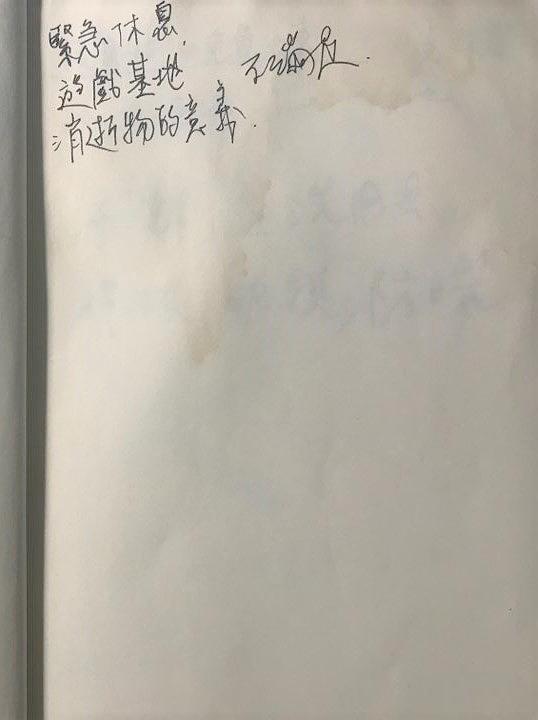 緊急休息,
遊戲基地
消逝物的意義.
不滿足.